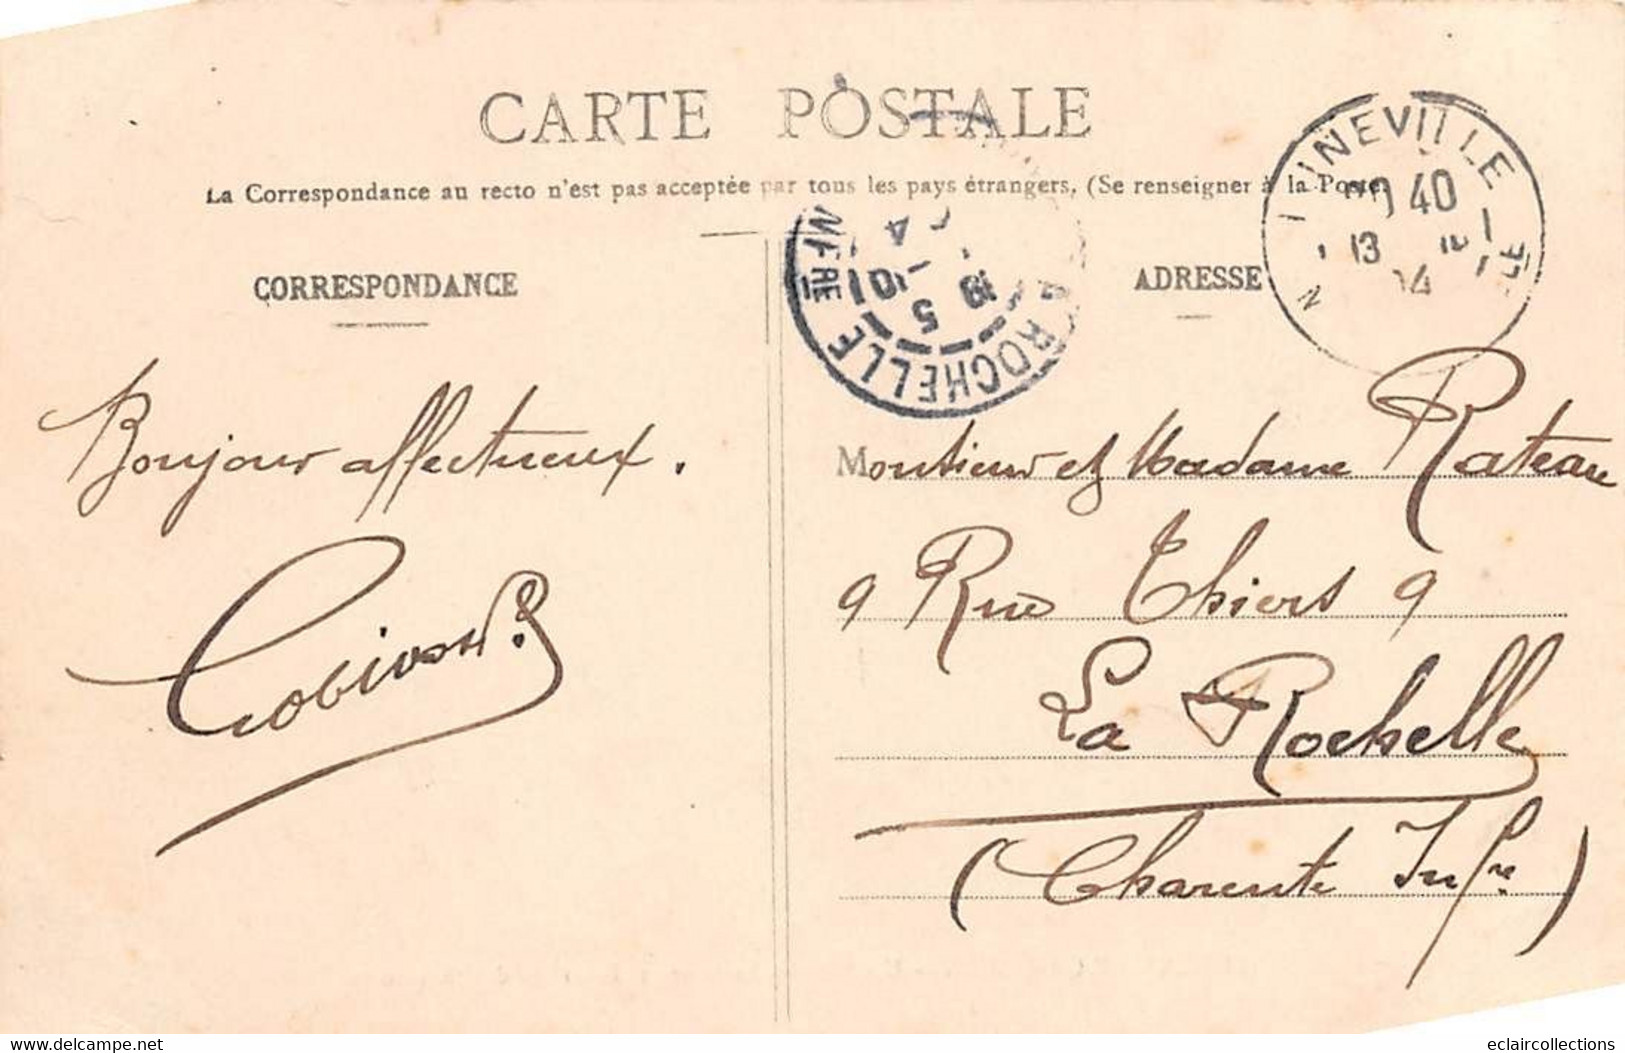 CARTE POSTALE
La Correspondance au recto n'est pas acceptée par tous les pays étrangers, (Se renseigner à la Poste)
CORRESPONDANCE
ADRESSE
NEVILLE
40
13
ROCHELLE
NFRE
5
Bonjour affectueux.
Monsieur et Madame Rateau
9 Rue Thiers 9
La Rochelle
(Charente Infre)
delcampe.net
eclaircollections